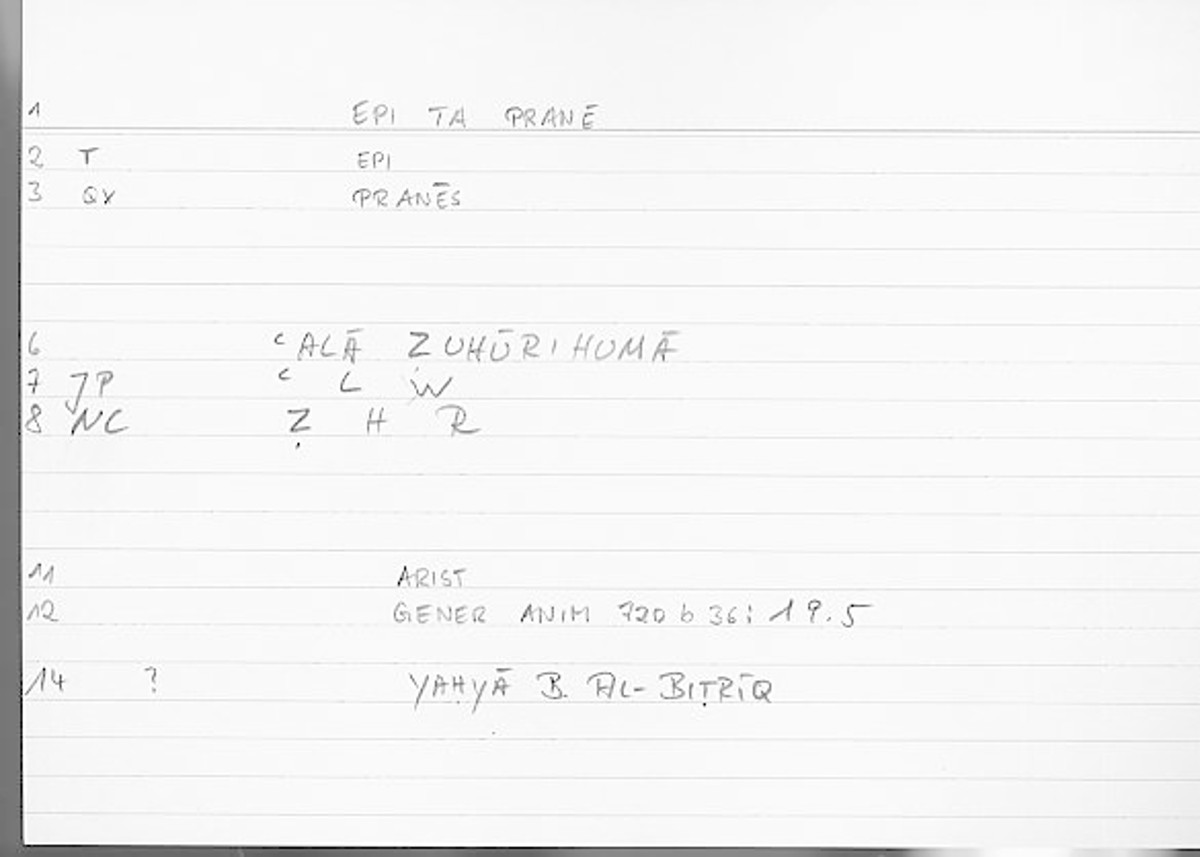 1 EPI TA PRANĒ
2 T EPI
3 QV PRANĒS
6 ʿALĀ ZUHŪRIHUMĀ
7 JP ʿ L W
8 NC Ẓ H R
11 ARIST
12 GENER ANIM 720 b 36; 19.5
14 ? YAḤYĀ B. AL-BIṬRĪQ